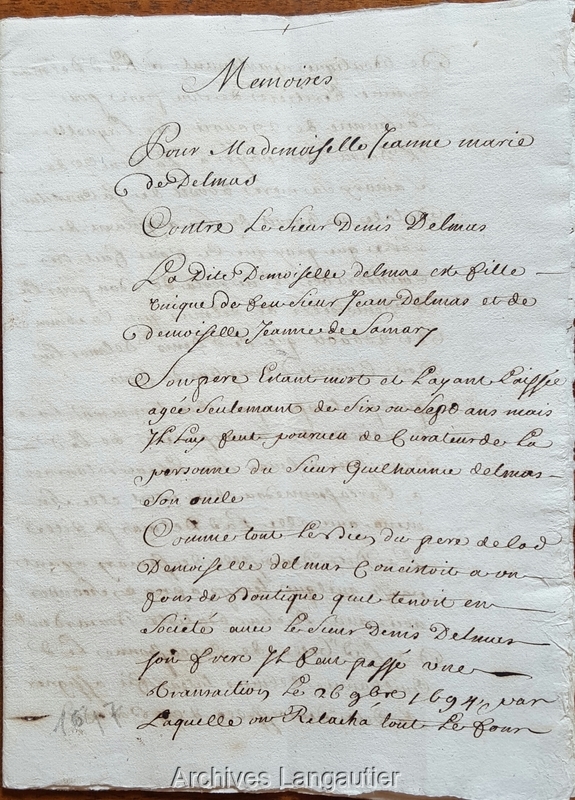 Memoires
Pour Mademoiselle Jeanne marie
de Delmas
Contre Le Sieur Denis Delmas
La Dite Demoiselle delmas est fille
unicque de feu Sieur Jean Delmas et de
demoiselle Jeanne de Samary
Son pere Estant mort et Layant Laissée
agée Seulemant de Six ou Sept ans mais
Jl Luy feut pourveu de Curateur de La
personne du Sieur Guilhaume delmas
Son oncle
Comme tout Le bien du pere de lad
Demoiselle delmas Concistoit a un
fons de Boutique quil tenoit en
Société avec Le Sieur Denis Delmas
son frere Jl feut passé une
transaction Le 26 9bre 1694 par
Laquelle on Relacha tout Le fons
Archives Langautier